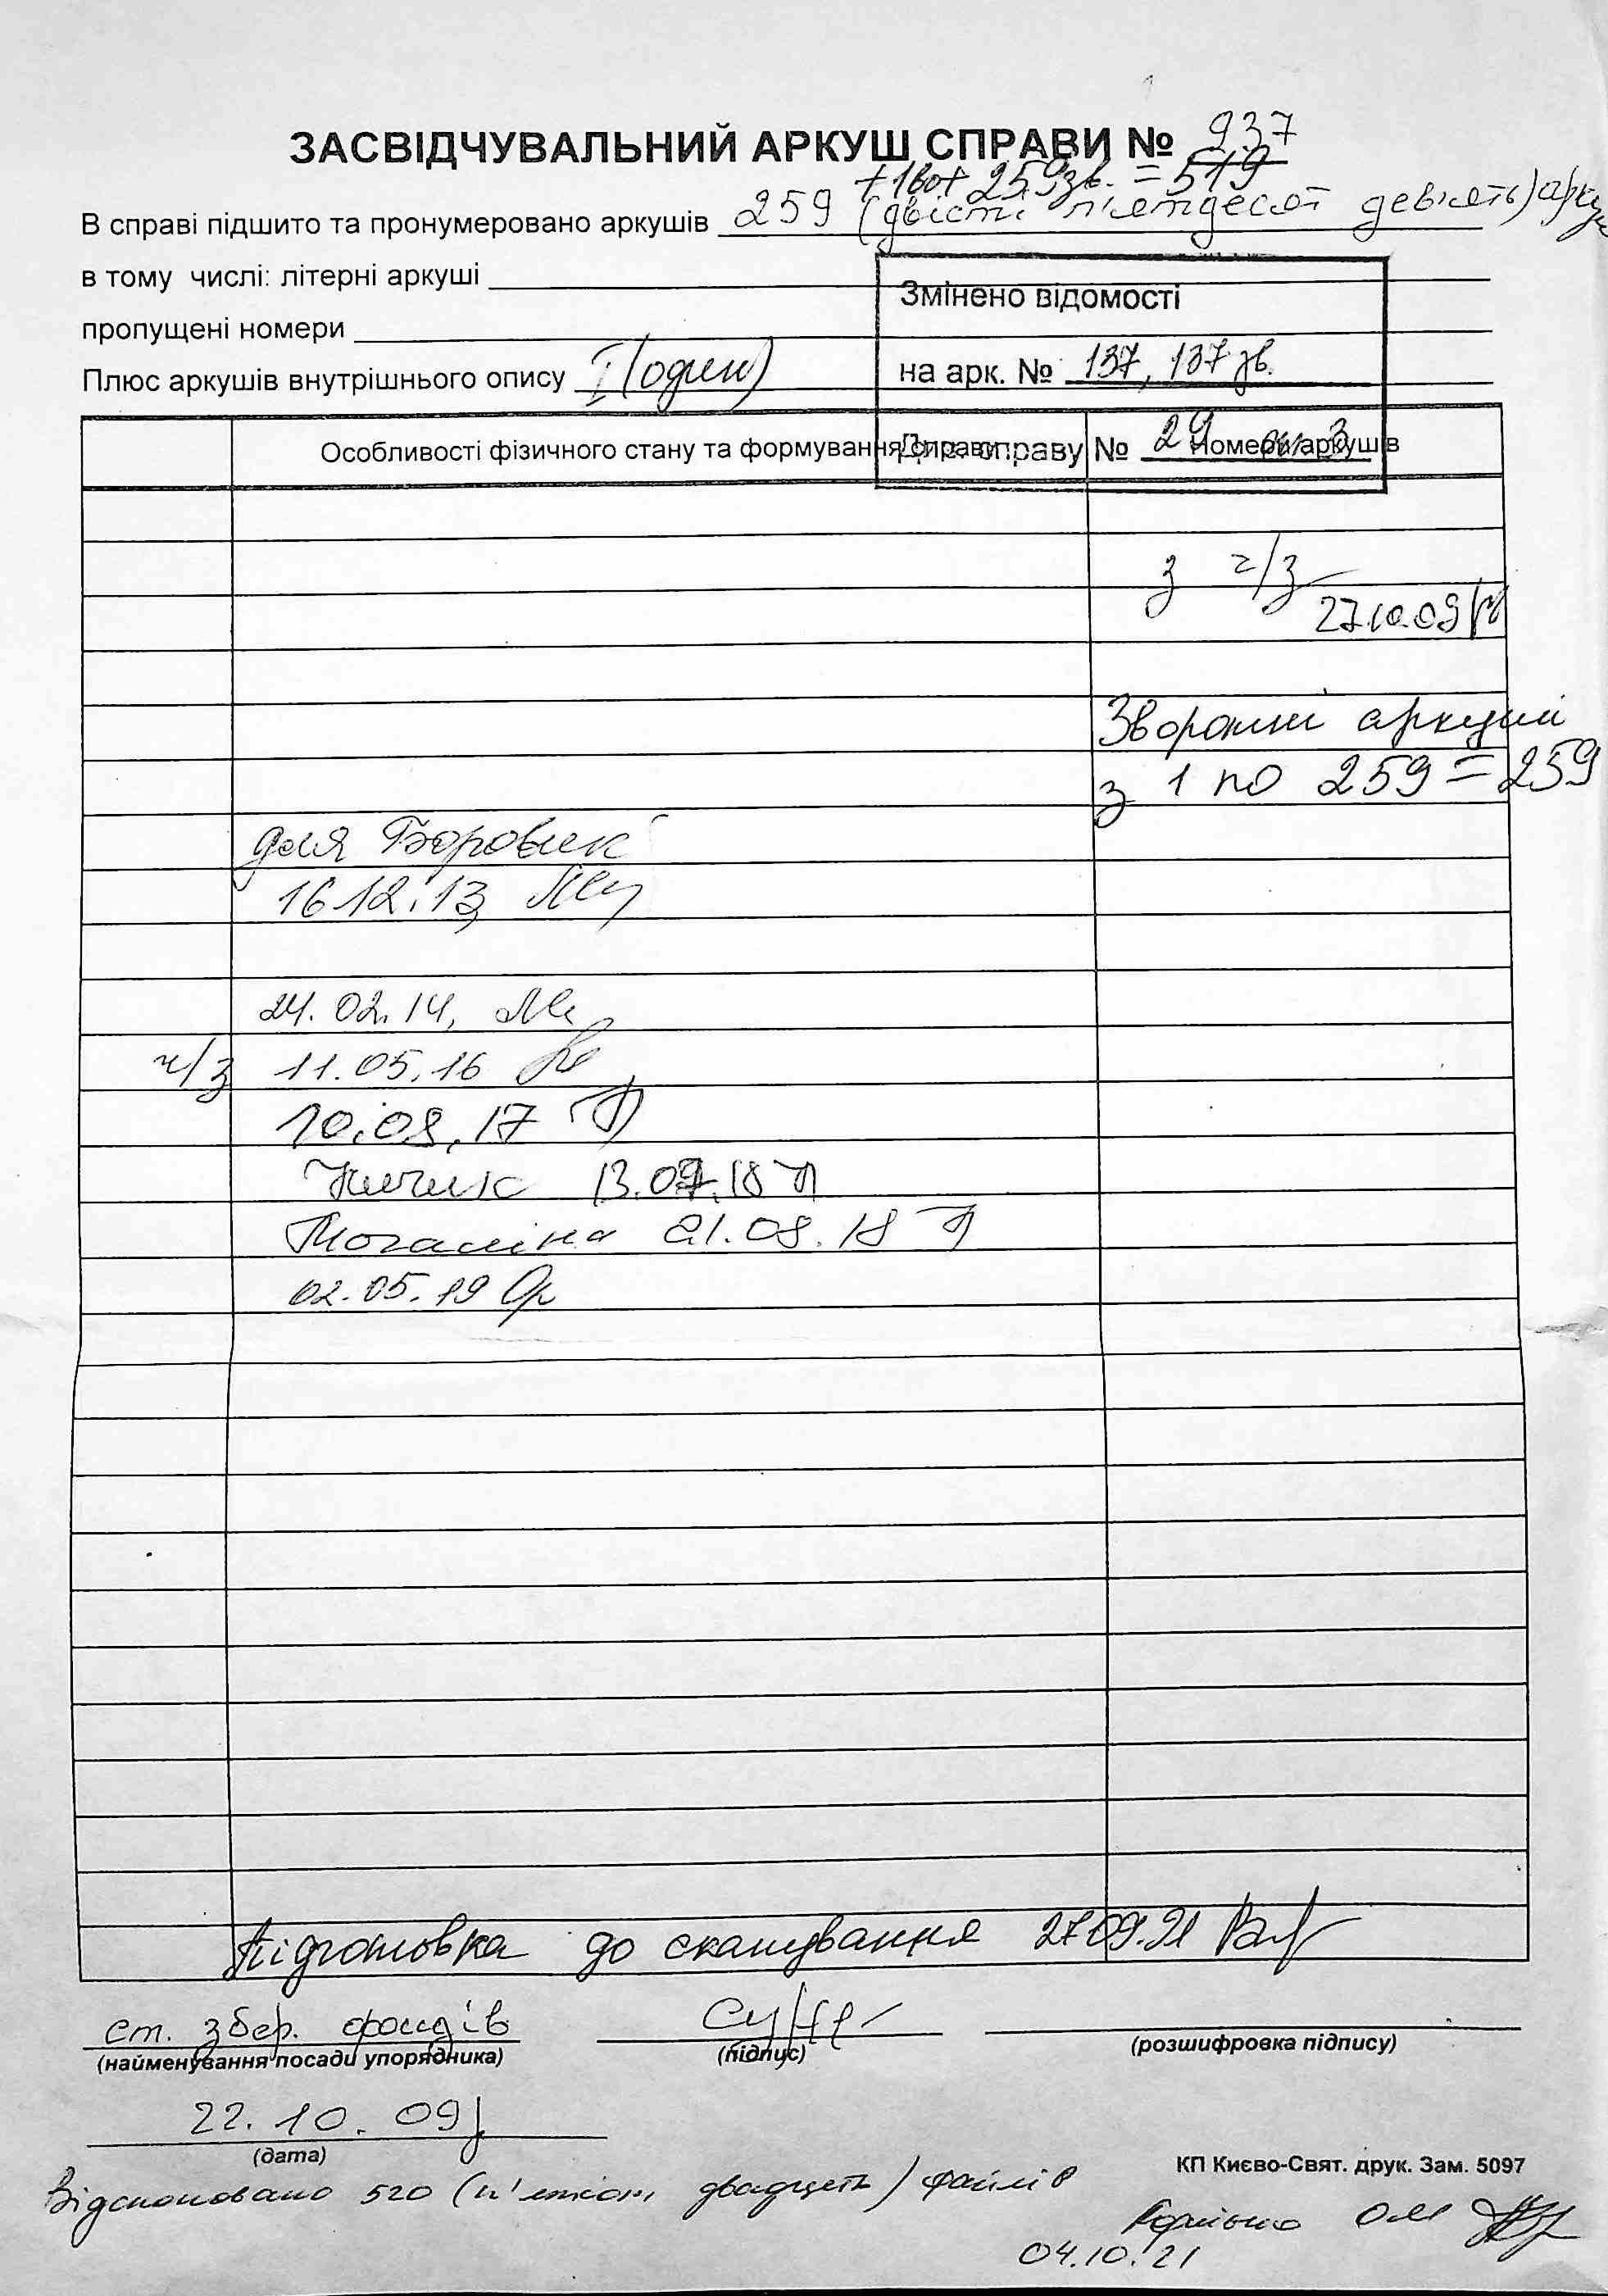 ЗАСВІДЧУВАЛЬНИЙ АРКУШ СПРАВИ № 937
+1во+ 259зв. = 519
В справі підшито та пронумеровано аркушів 259 (двісті п'ятдесят девять) арку
в тому числі: літерні аркуші
Змінено відомості
пропущені номери
Плюс аркушів внутрішнього опису 1 (один)
на арк. № 137, 137 зв.
Особливості фізичного стану та формування справи
Номери аркушів
Див. справу № 29 оп. 3
з ч/з
27.10.09
Зворотні аркуші
з 1 по 259 = 259
для Боровик
16.12.13
24.02.14,
ч/з 11.05.16
10.08.17
13.07.18
21.08.18
02.05.19
Підготовка до сканування 27.09.21
ст. збер. фондів
(найменування посади упорядника)
(підпис)
(розшифровка підпису)
22.10.09
(дата)
КП Києво-Свят. друк. Зам. 5097
Відскановано 520 (п'ятсот двадцять) файлів
04.10.21